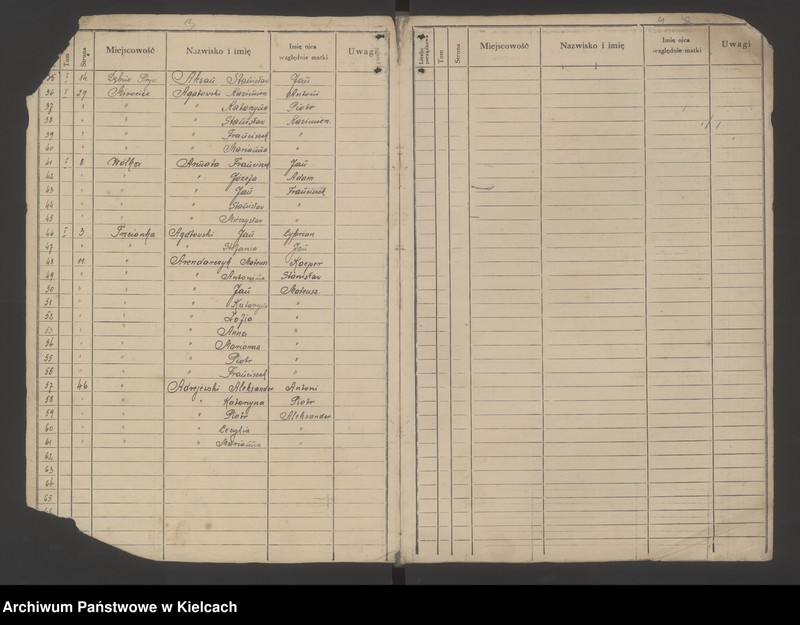 Tom Strona Miejscowość Nazwisko i imię Imię ojca względnie matki Uwagi
35 I 14 Stanisław Jan
36 I 29 Agatowski Kazimierz Antoni
37 " " " Katarzyna Piotr
38 " " " Stanisław Kazimierz
39 " " " Franciszek "
40 " " " Marianna "
41 I 8 Wólka Armata Franciszek Jan
42 " " " Józefa Adam
43 " " " Jan Franciszek
44 " " " Stanisław "
45 " " " Mieczysław "
46 I 3 Trzcianka Agatowski Jan Cyprian
47 " " " Stefania Jan
48 11 " Arendarczyk Mateusz Kacper
49 " " " Antonina Stanisław
50 " " " Jan Mateusz
51 " " " Katarzyna "
52 " " " Zofia "
53 " " " Anna "
54 " " " Marianna "
55 " " " Piotr "
56 " " " Franciszek "
57 46 " Adrejewski Aleksander Antoni
58 " " " Katarzyna Piotr
59 " " " Piotr Aleksander
60 " " " Cecylia "
61 " " " Marianna "
62
63
64
65
Liczba porządkowa Tom Strona Miejscowość Nazwisko i imię Imię ojca względnie matki Uwagi
Archiwum Państwowe w Kielcach